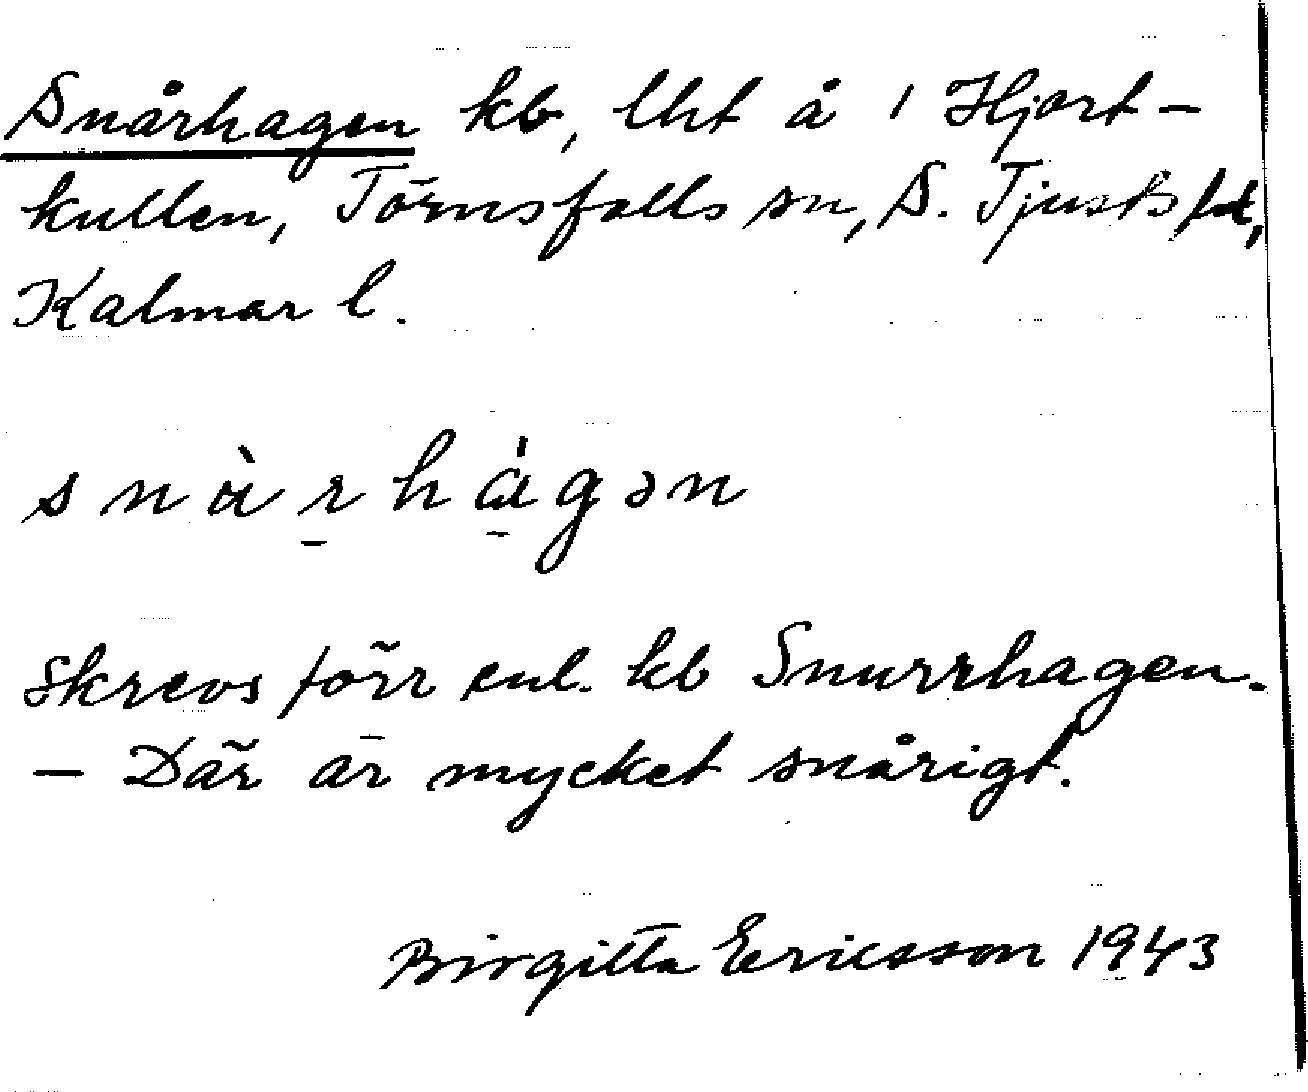 Snårhagen kb, lht å 1 Hjort-
kullen, Törnsfalls sn, S. Tjusts hd,
Kalmar l.
snàrhágən
Skrevs förr enl. kb Snurrhagen.
– Där är mycket snårigt.
Birgitta Ericsson 1943